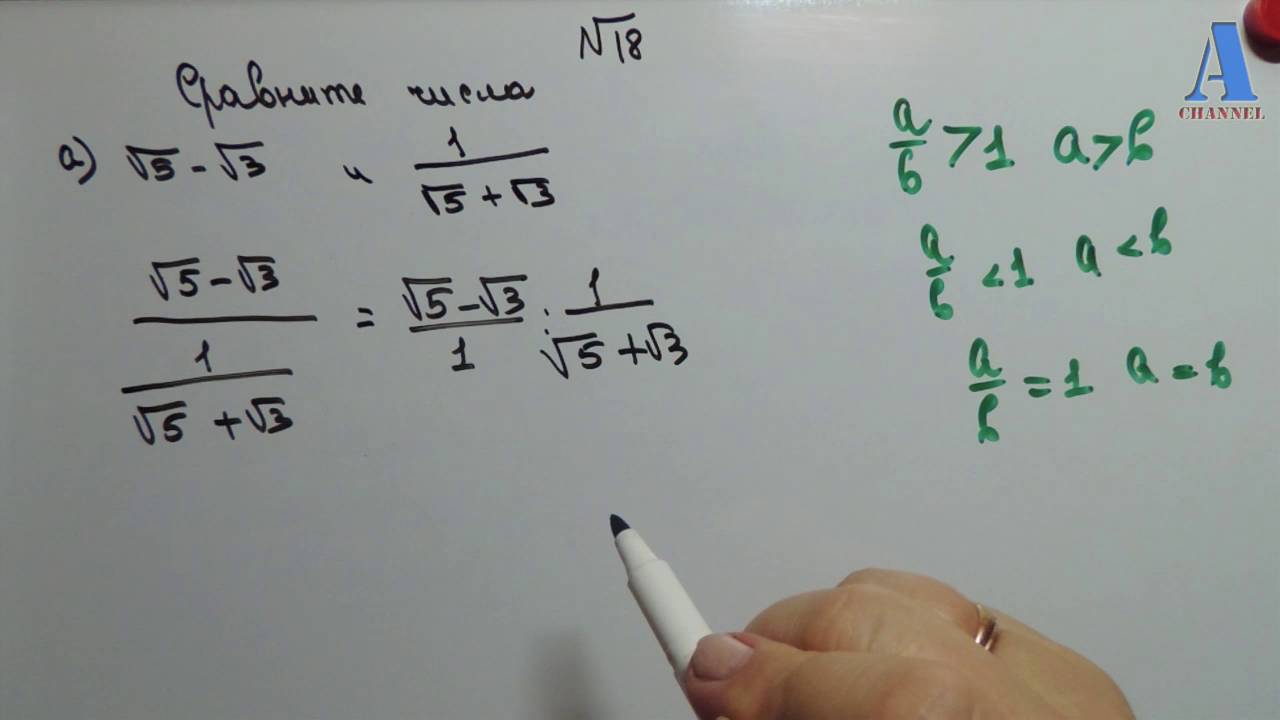 √18
Сравните числа
а) √5 - √3 и 1/(√5 + √3)
(√5 - √3)/(1/(√5 + √3)) = (√5 - √3)/1 : 1/(√5 + √3)
a/b > 1 a > b
a/b < 1 a < b
a/b = 1 a = b
A
CHANNEL